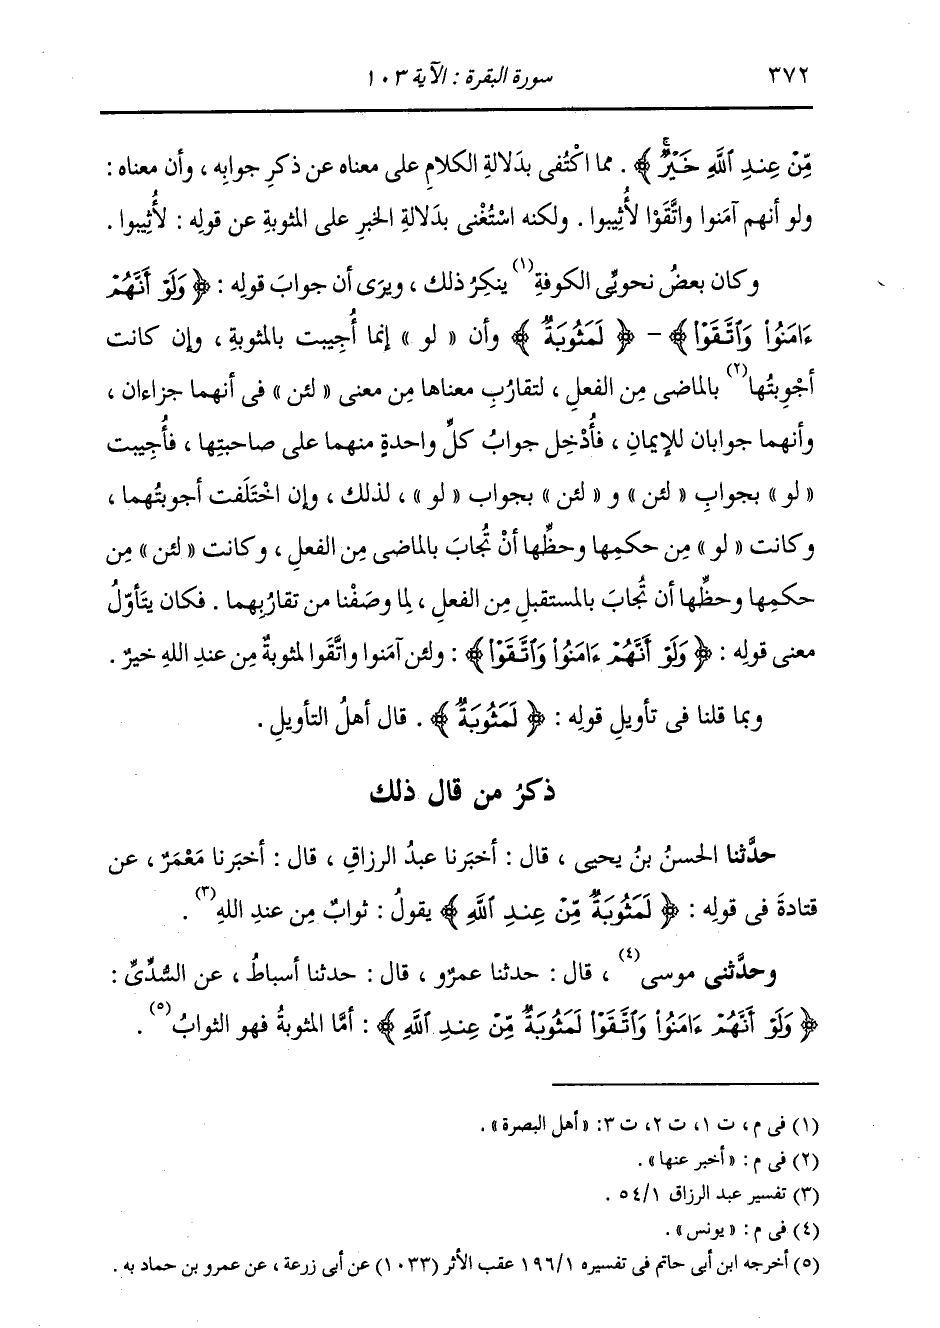 ٣٧٢
سورة البقرة : الآية ١٠٣
مِّنْ عِندِ ٱللَّهِ خَيْرٌۚ ﴾ . مما اكْتُفى بدَلالةِ الكلامِ على معناه عن ذكرِ جوابِه ، وأن معناه :
ولو أنهم آمَنوا واتَّقَوْا لأُثِيبوا . ولكنه اسْتُغْنى بدَلالةِ الخبرِ على المثوبةِ عن قولِه : لأُثِيبوا .
وكان بعضُ نحويِّى الكوفةِ(١) ينكِرُ ذلك ، ويرَى أن جوابَ قولِه : ﴿ وَلَوْ أَنَّهُمْ
ءَامَنُواْ وَٱتَّقَوْاْ ﴾ – ﴿ لَمَثُوبَةٌ ﴾ وأن « لو » إنما أُجيبت بالمثوبةِ ، وإن كانت
أجْوِبتُها(٢) بالماضى مِن الفعلِ ، لتقارُبِ معناها مِن معنى « لئن » فى أنهما جزاءان ،
وأنهما جوابان للإيمانِ ، فأُدْخِل جوابُ كلِّ واحدةٍ منهما على صاحبتِها ، فأُجِيبت
« لو » بجوابِ « لئن » و « لئن » بجواب « لو » ، لذلك ، وإن اخْتَلَفت أجوبتُهما ،
وكانت « لو » مِن حكمِها وحظِّها أنْ تُجابَ بالماضى مِن الفعلِ ، وكانت « لئن » مِن
حكمِها وحظِّها أن تُجابَ بالمستقبلِ مِن الفعلِ ، لِما وصَفْنا من تقارُبِهما . فكان يتَأوّلُ
معنى قولِه : ﴿ وَلَوْ أَنَّهُمْ ءَامَنُواْ وَٱتَّقَوْاْ ﴾ : ولئن آمَنوا واتَّقَوا لمثوبةٌ مِن عندِ اللهِ خيرٌ .
وبما قلنا فى تأويلِ قولِه : ﴿ لَمَثُوبَةٌ ﴾ . قال أهلُ التأويلِ .
ذكرُ من قال ذلك
حدَّثنا الحسنُ بنُ يحيى ، قال : أخبَرنا عبدُ الرزاقِ ، قال : أخبَرنا مَعْمَرٌ ، عن
قتادةَ فى قولِه : ﴿ لَمَثُوبَةٌ مِّنْ عِندِ ٱللَّهِ ﴾ يقولُ : ثوابٌ مِن عندِ اللهِ(٣) .
وحدَّثنى موسى(٤) ، قال : حدثنا عمرٌو ، قال : حدثنا أسباطُ ، عن السُّدِّىِّ :
﴿ وَلَوْ أَنَّهُمْ ءَامَنُواْ وَٱتَّقَوْاْ لَمَثُوبَةٌ مِّنْ عِندِ ٱللَّهِ ﴾ : أمَّا المثوبةُ فهو الثوابُ(٥) .
(١) فى م، ت ١، ت ٢، ت ٣: «أهل البصرة» .
(٢) فى م : «أخبر عنها» .
(٣) تفسير عبد الرزاق ٥٤/١ .
(٤) فى م : «يونس» .
(٥) أخرجه ابن أبى حاتم فى تفسيره ١٩٦/١ عقب الأثر (١٠٣٣) عن أبى زرعة ، عن عمرو بن حماد به .